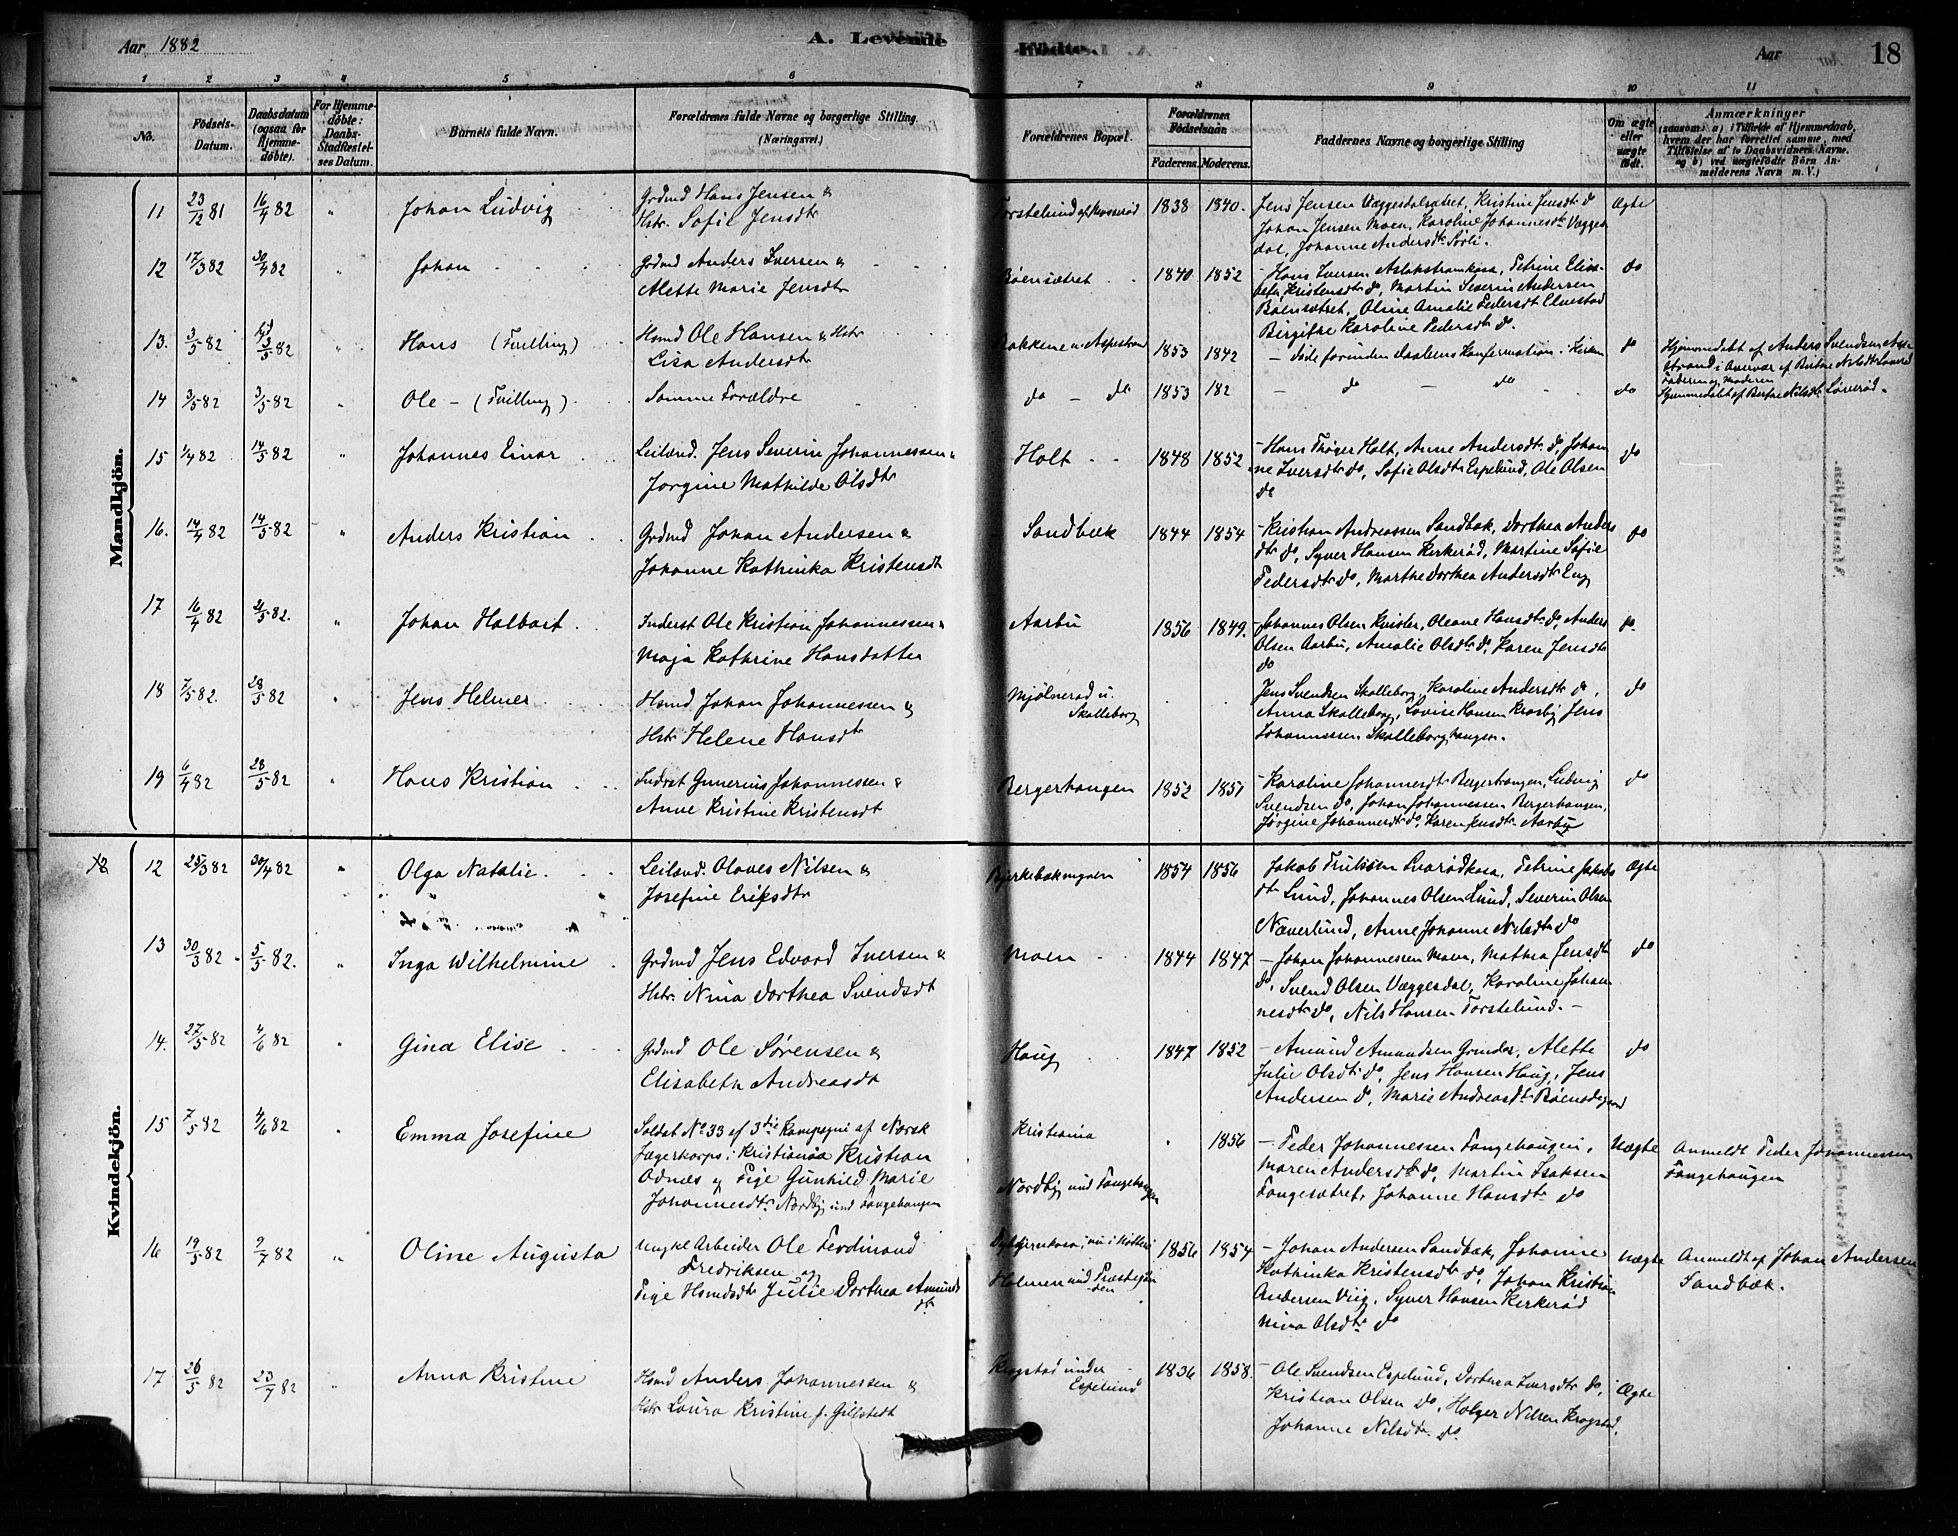 Aar 1882
A. Levende
Fødte.
Aar
18
1 2 3 4 5 6 7 8 9 10 11
No.
Födsels-
Datum.
Daabsdatum
(ogsaa for
Hjemme-
döbte).
For Hjemme-
döbte:
Daabs-
Stadfæstel-
ses Datum.
Barnets fulde Navn.
Forældrenes fulde Navne og borgerlige Stilling.
(Næringsvei.)
Forældrenes Bopæl.
Forældrenes
Födselsaar.
Faderens. Moderens.
Faddernes Navne og borgerlige Stilling
Om ægte
eller
uægte
födt.
Anmærkninger
(saasom: a) i Tilfælde af Hjemmedaab,
hvem der har forrettet samme, med
Tilföielse af to Daabsvidners Navne.
og b) ved uægtefödte Börn An-
melderens Navn m. V.)
Mandkjön.
11 23/12 81 16/4 82 " Johan Ludvig
Grdmd Hans Jensen &
Hstr. Sofie Jensdtr
1838 1840.
Jens Jensen Væggesdalsætret, Kristine Jensdtr do
Johan Jensen Moen, Karoline Johannesdtr Vægges
dal, Johanne Andersdtr Sørli.
Ægte
12 17/3 82 30/4 82 " Johan
Grdmd Anders Iversen &
Alette Marie Jensdtr
Bøensætret
1840 1852
- Hans Iversen Aslakstramkasa, Petrine Elisa-
beth Kristensdtr do, Martin Severin Andersen
Bøensætret, Oline Amalie Pedersdt Elvestad
Birgithe Karoline Pedersdtr do.
do
13. 3/5 82 3/5 82 " Hans (Tvilling)
Hsmd Ole Hansen & Hstr
Lisa Andersdtr
Bakkene u. Aspestrand
1853 1842
- Døde forinden Daabens Konfirmation i Kirken
do
Hjemmedøbt af Anders Svendsen Aspe
strand i Overvær af Birthe Nilsdtr Løverød
Faderen og Moderen
14 3/5 82 3/5 82 " Ole - (Tvilling)
Samme Forældre
do - do
1853 182
- do - do
do
Hjemmedøbt af Berthe Nilsdtr Løverød.
15 1/4 82 14/5 82 " Johannes Einar
Leilænd. Jens Severin Johannessen &
Jørgine Mathilde Olsdtr
Holt
1848 1852
- Hans Trøger Holt, Anne Andersdtr do, Johan
ne Iversdtr do, Sofie Olsdtr Espelund, Ole Olsen
do
do
16. 14/4 82 14/5 82 " Anders Kristian
Grdmd Johan Andersen &
Johanne Kathinka Kristensdt
Sandbæk
1844 1854
- Kristian Andreassen Sandbæk, Dorthea Anders
dtr do, Syver Hansen Kirkerød, Martine Sofie
Pedersdtr do, Marthe Dorthea Andersdtr Eng
do
17 16/4 82 21/5 82. " Johan Halbart
Inderst Ole Kristian Johannessen &
Maja Kathrine Hansdatter
Aarbu
1856 1849.
- Johannes Olsen Kinsler, Oleane Hansdtr do, Anders
Olsen Aarbu, Amalie Olsdtr do, Karen Jensdtr
do
do.
18 7/5 82. 28/5 82 " Jens Helmer
Hsmd Johan Johannessen &
Hstr Helene Hansdt
Mjølnerød u.
Skalleborg
Jens Svendsen Skalleborg, Karoline Andersdtr do,
Anna Skalleborg, Lovise Hansen Krosby, Jens
Johannessen Skalleborghaugen.
do
19 6/4 82 28/5 82 " Hans Kristian
Inderst Gunerius Johannessen &
Anne Kristine Kristensdt
Bergerhaugen
1852 1851
- Karoline Johannesdtr Bergerhaugen, Ludvig
Svendsen do, Johan Johannessen Bergerhaugen,
Jørgine Johannesdtr do, Karen Jensdtr Aarby
do
Kvindekjön.
12 12 25/3 82 30/4 82 " Olga Natalie.
Leilænd. Olaves Nilsen &
Josefine Eriksdtr
1854 1856
Jakob Truksen Svarødkasa, Petrine Jakobs
dtr Lund, Johannes Olsen Lund, Severin Olsen
Næverlund, Anne Johanne Nilsdtr do
Ægte
13 30/3 82 5/5 82. " Inga Wilhelmine
Grdmd Jens Edvard Iversen &
Hstr. Nina Dorthea Svendsdt
Moen
1844 1847
- Johan Johannessen Moen, Mathea Jensdtr
do, Svend Olsen Væggesdal, Karoline Johan
nesdtr do, Nils Hansen Torstelund. -
do
14. 27/5 82 4/6 82 " Gina Elise
Grdmd Ole Sørensen &
Elisabeth Andreasdt
Haug
1847 1852
- Amund Amundsen Grinder, Alette
Julie Olsdtr do, Jens Hansen Haug, Jens
Andersen do, Marie Andreasdtr Bøensødegaard
do
15 7/5 82 4/6 82 " Emma Josefine
Soldat No 33 af 3die Kompagni af Norsk
Jægerkorps i Kristiania Kristian
Odnæs og Pige Gunhild Marie
Johannesdtr Nordby und Tangehaugen
Kristiania
Nordby und Tangehaugen
" 1856
- Peder Johannessen Tangehaugen,
Maren Andersdtr do, Martin Isaksen
Tangesætret, Johanne Hansdtr do
Uægte
Anmeldt Peder Johannessen
Tangehaugen
16 19/5 82 9/7 82 " Oline Augusta
Ungkl Arbeider Ole Ferdinand
Fredriksen og
Pige Hsmdsdtr Julie Dorthea Amunds
dtr
Holmen und Præstegaar
den
1856 1854
- Johan Andersen Sandbæk, Johanne
Kathinka Kristensdtr do, Johan Kristian
Andersen Viig, Syver Hansen Kirkerød
Nina Olsdtr do
Uægte
Anmeldt af Johan Andersen
Sandbæk.
17 26/5 82 23/7 82 " Anna Kristine
Hsmd Anders Johannessen &
Hstr Laura Kristine f. Gillstedt
Krogstad under
Espelund
1836 1858.
- Ole Svendsen Espelund, Dorthea Iversdtr do,
Kristian Olsen do, Holger Nilsen Krogstad,
Johanne Nilsdtr do.
Ægte